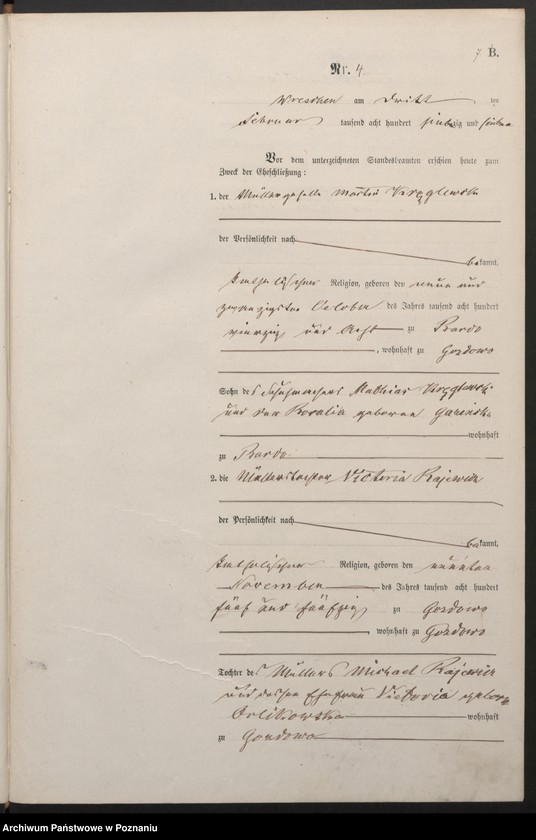 7 B.
Nr. 4
Wreschen am dritten
Februar tausend acht hundert siebenzig und sieben
Vor dem unterzeichneten Standesbeamten erschien heute zum
Zweck der Eheschließung:
1. der Müllergeselle Martin
der Persönlichkeit nach
bekannt,
katholischer Religion, geboren den neun und
zwanzigsten October des Jahres tausend acht hundert
vierzig und acht zu Bardo
, wohnhaft zu Gozdowo
Sohn des Schuhmachers Mathias
und der Rosalia geborene
wohnhaft
zu Bardo
2. die Müllerstochter Victoria Rajewicz
der Persönlichkeit nach
bekannt,
katholischer Religion, geboren den neunten
November des Jahres tausend acht hundert
fünf und fünfzig zu Gozdowo
, wohnhaft zu Gozdowo
Tochter des Müllers Michael Rajewicz
und dessen Ehefrau Victoria geborne
Orlikowska wohnhaft
zu Gozdowo
Archiwum Państwowe w Poznaniu